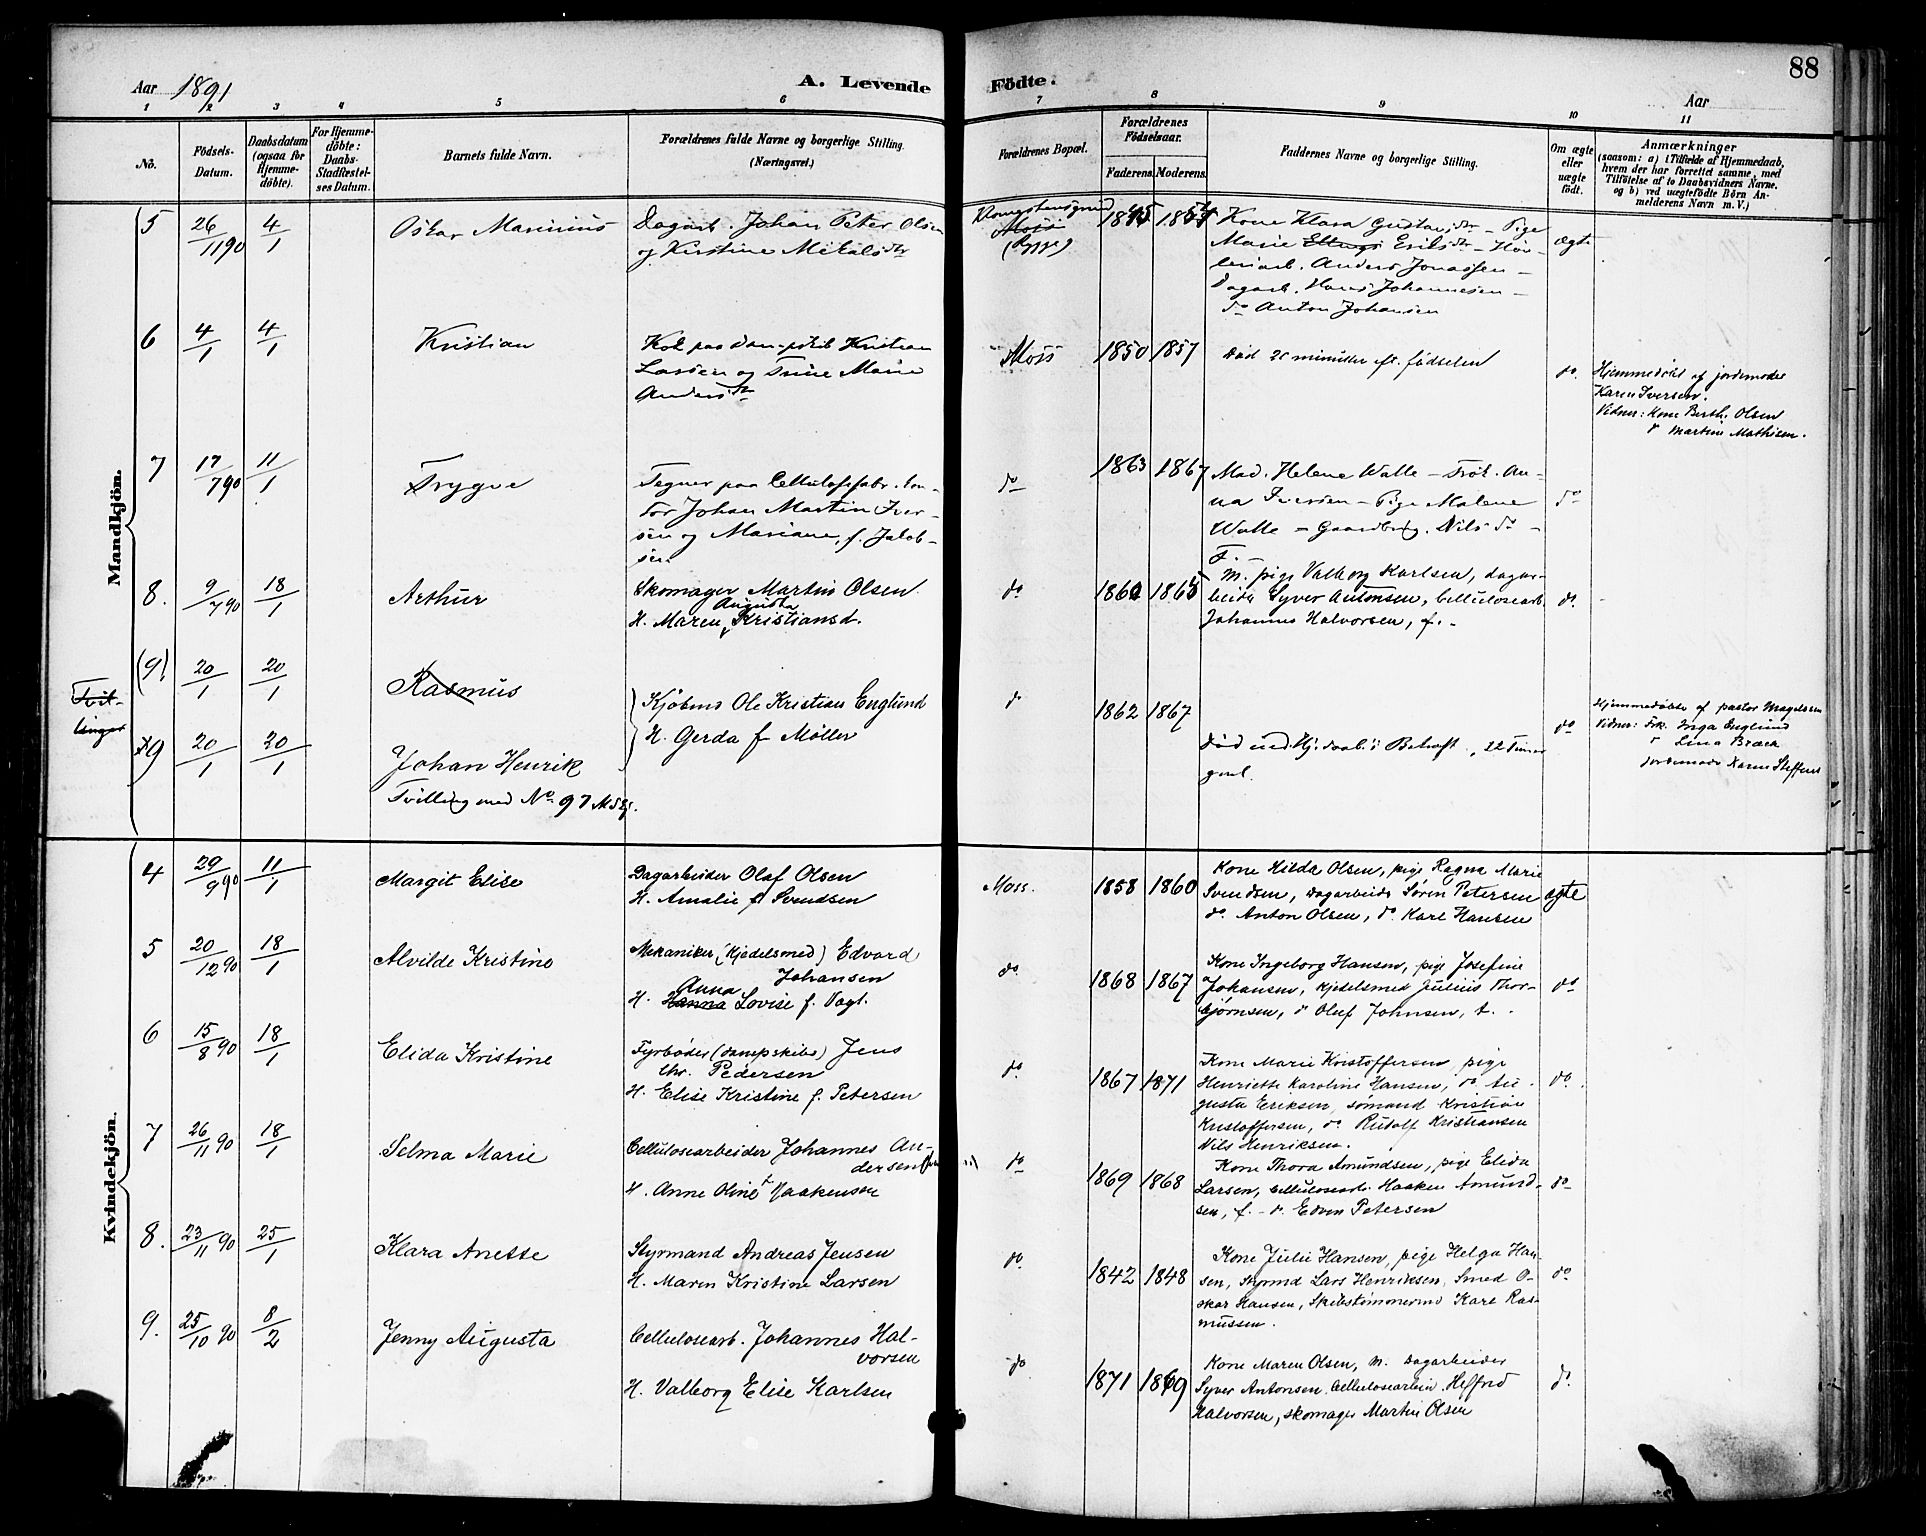 88
Aar 1891
A. Levende
Födte.
Aar
1 2 3 4 5 6 7 8 9 10 11
No.
Födsels-
Datum.
Daabsdatum
(ogsaa for
Hjemme-
döbte).
For Hjemme-
döbte:
Daabs-
Stadfæstel-
ses Datum.
Barnets fulde Navn.
Forældrenes fulde Navne og borgerlige Stilling.
(Næringsvei.)
Forældrenes Bopæl.
Forældrenes
Födselsaar.
Faderens.
Moderens.
Faddernes Navne og borgerlige Stilling.
Om ægte
eller
uægte
födt.
Anmærkninger
(saasom: a) i Tilfælde af Hjemmedaab,
hvem der har forrettet samme, med
Tilföielse af to Daabsvidners Navne.
og b) ved uægtefödte Börn An-
melderens Navn m. V.)
Mandkjön.
5 26/11 90 4/1
Oskar Marinius
Dagarb. Johan Peter Olsen
og Kirstine Mikalsdtr
Moss
(Rygge)
1845 1854
Kone Klara Gustavsdtr – Pige
Marie Eriksdtr – Høv-
leriarb. Anders Jonassen –
Dagarb. Hans Johannesen –
do Anton Johansen
ægte
6 4/1 4/1
Kristian
Kok paa Kristian
Larsen og Trine Marie
Andersdtr
Moss
1850 1857
Død 20 minutter eft. fødselen
do.
Hjemmedøbt af jordemoder
Karen Iversen.
Vidner: Kone Berthe Olsen
d Martine Mathisen.
7 17/7 90 11/1
Trygve
Tegner paa Cellulosefabr. kon-
tor Johan Martin Iver-
sen og Mariane, f. Jakob-
sen
do
1863 1867
Mad. Helene Walle – Frök. An-
na Iversen – Pige Malene
Walle – Gaardbrug. Nils do –
F. –
do
8. 9/7 90 18/1
Arthur
Skomager Martin Olsen
H. Maren Augusta Kristiansd.
do
1860 1865
M. pige Valborg Karlsen, dagar-
beider Syver Antonsen, Cellulosearb.
Johannes Halvorsen, f. –
do.
Tvil-
linger
(9) 20/1 20/1
Rasmus
Kjøbmd Ole Kristian Englund
H. Gerda f. Møller
do
1862 1867
9 20/1 20/1
Johan Henrik
Tvilling med No 97
Død ved Hj.daab's Bekræft., 22 Timer
gml.
do
Hjemmedøbte af pastor Magelssen
Vidner: Frk. Inga Englund
d Lina Braek
jordemoder Karen Steffens
Kvindekjön.
4 29/9 90 11/1
Margit Elise
Dagarbeider Olaf Olsen
H. Amalie f Svendsen
Moss.
1858 1860
Kone Hilda Olsen, pige Ragna Marie
Svendsen, dagarbeider Søren Petersen
do. Anton Olsen, do. Karl Hansen
ægte
5 20/12 90 18/1
Alvilde Kristine
Mekaniker (Kjedelsmed) Edvard
Johansen
H. Hanna Anna Lovise f. Vogt.
do.
1868 1867
Kone Ingeborg Hansen, pige Josefine
Johansen, kjedelsmed Julius Thor-
bjørnsen, do Oluf Johnsen, f. .
do
6 15/8 90 18/1
Elida Kristine
Fyrbøder (dampskibs) Jens
Chr. Pedersen
H. Elise Kristine f. Petersen
do.
1867 1871
Kone Marie Kristoffersen, pige
Henriette Karoline Hansen, do. Au-
gusta Eriksen, sømand Kristian
Kristoffersen, do. Rudolf Kristiansen
Nils Henriksen.
do.
7 26/11 90 18/1
Selma Marie
Cellulosearbeider Johannes An-
dersen
H. Anne Oline f Haakensen
do
1869 1868
Kone Thora Amundsen, pige Elida
Larsen, Cellulosearb. Haaken Amund-
sen, f. – d. Edvin Petersen
do
8. 23/11 90 25/1
Klara Anette
Styrmand Andreas Jensen
H. Maren Kristine Larsen
do.
1842 1848
Kone Julie Hansen, pige Helga Han-
sen, styrmd Lars Henriksen, Smed O-
skar Hansen, Skibstømmermd Karl Ras-
mussen.
do
9. 25/10 90 8/2
Jenny Augusta
Cellulosearb. Johannes Hal-
vorsen
H. Valborg Elise Karlsen
do
1871 1869
Kone Maren Olsen, M. Dagarbeider
Syver Antonsen, Cellulosearbei. Helfrid
Halvorsen, skomager Martin Olsen
do.